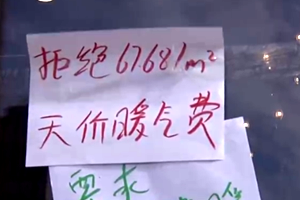 拒绝67.68/m²
天价暖气费
要求